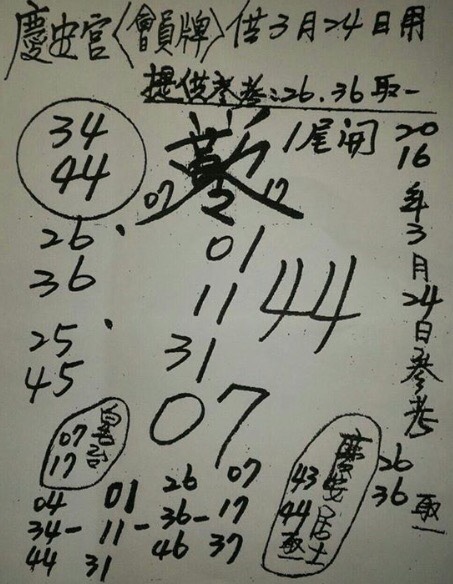 慶安宮〈會員牌〉供3月24日用
提供參考:26.36取一
34
44
1尾開
07 17
2016年3月24日參考
26.
36
01
11
31
44
25.
45
07
07
17
慶安居士
43
44
取一
26
36
取一
04 01 26 07
34-11-36-17
44 31 46 37